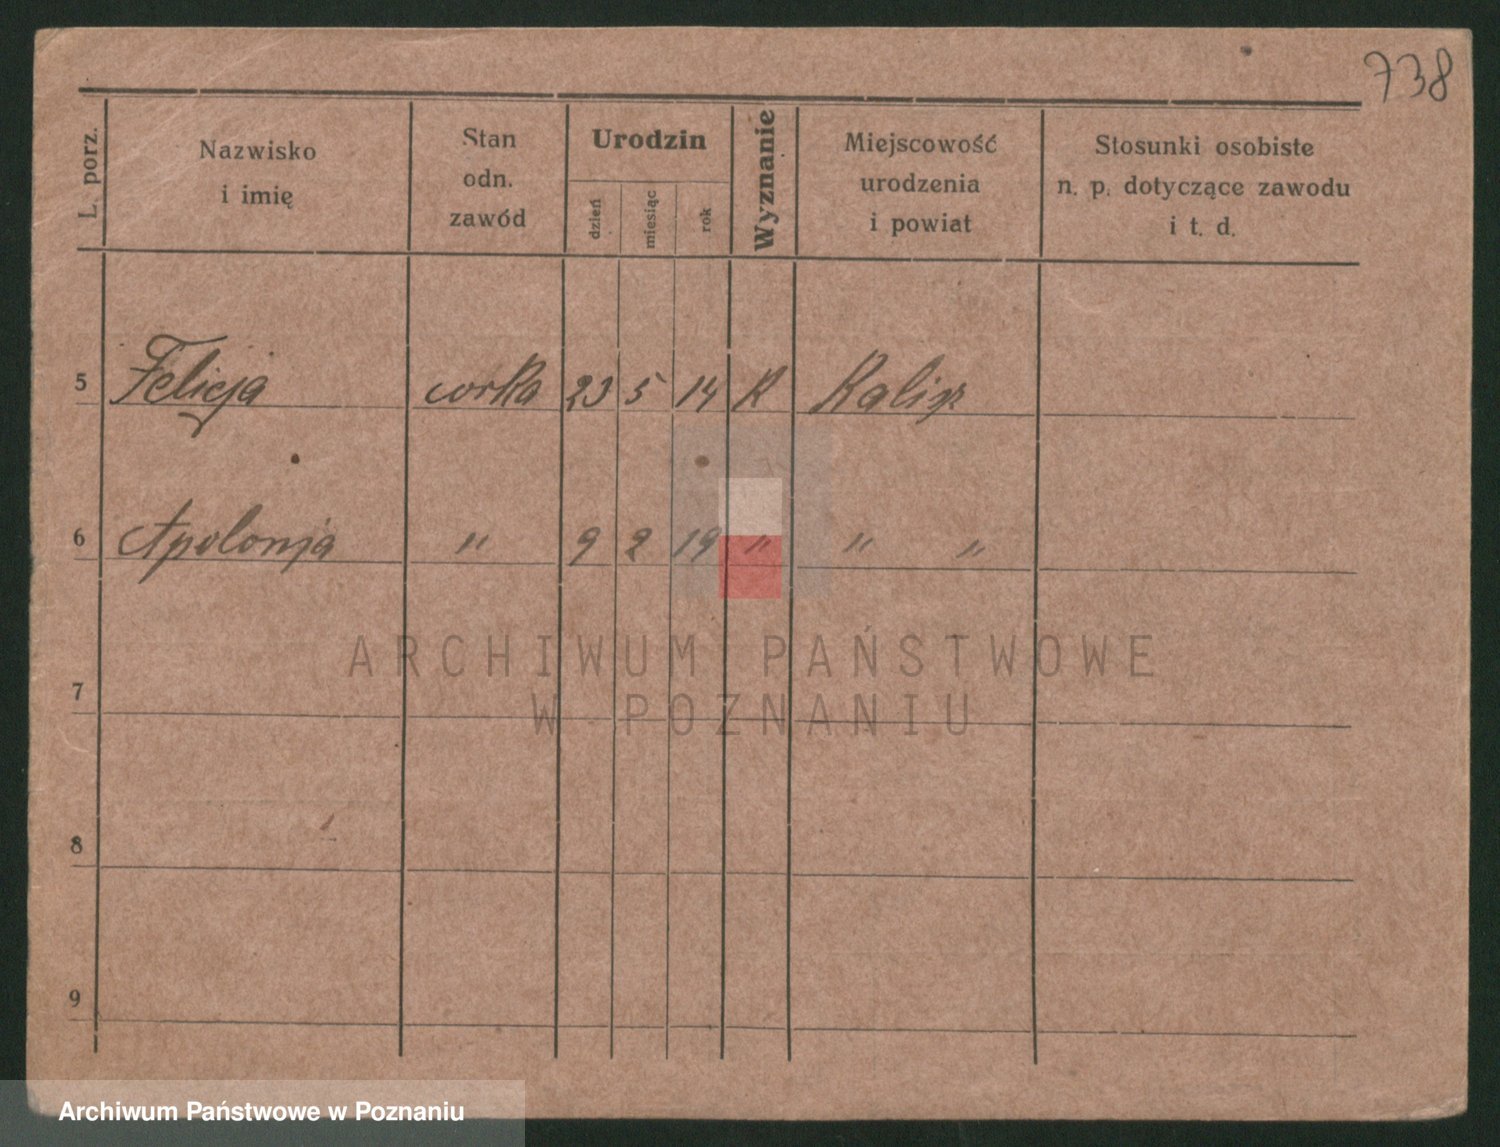 738
L. porz.
Nazwisko
i imię
Stan
odn.
zawód
Urodzin
dzień
miesiąc
rok
Wyznanie
Miejscowość
urodzenia
i powiat
Stosunki osobiste
n. p. dotyczące zawodu
i t. d.
5 Felicja corka 23 5 14 K Kalisz
6 Apolonja " 9 2 19 " " "
ARCHIWUM PAŃSTWOWE
W POZNANIU
7
8
9
Archiwum Państwowe w Poznaniu